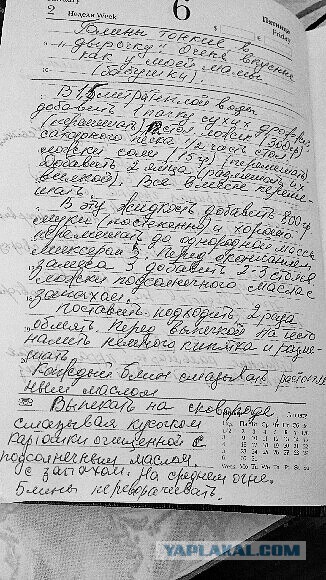 2 Неделя Week
6
Пятница
Friday
Блины тонкие в
дырочку". Очень вкусные
как у моей мамы
(бабушки).
В 1,5 литра теплой воды
добавить 1 пачку сухих дрожжей
(перемешать), стол. ложки (300гр)
сахарного песка 1/2 часть стол.
ложки соли (15гр) (перемешать)
Добавить 2 яйца (размешать их
вилкой). Все вместе переме-
шать.
В эту жидкость добавить 800гр
муки (постепенно) и хорошо
перемешать до однородной массы
миксером. Перед окончанием
замеса добавить 2-3 стол.
ложки подсолнечного масла с
запахом.
Поставить подходить 2 раза
обмять. Перед выпечкой на тесто
налить немного кипятка и разме-
шать
Каждый блин смазывать растопле-
нным маслом
Выпекать на сковороде
смазывая кусочком
картошки очищенной с
подсолнечным маслом
с запахом. На среднем огне.
Блины переворачивать.
YAPLAKAL.COM